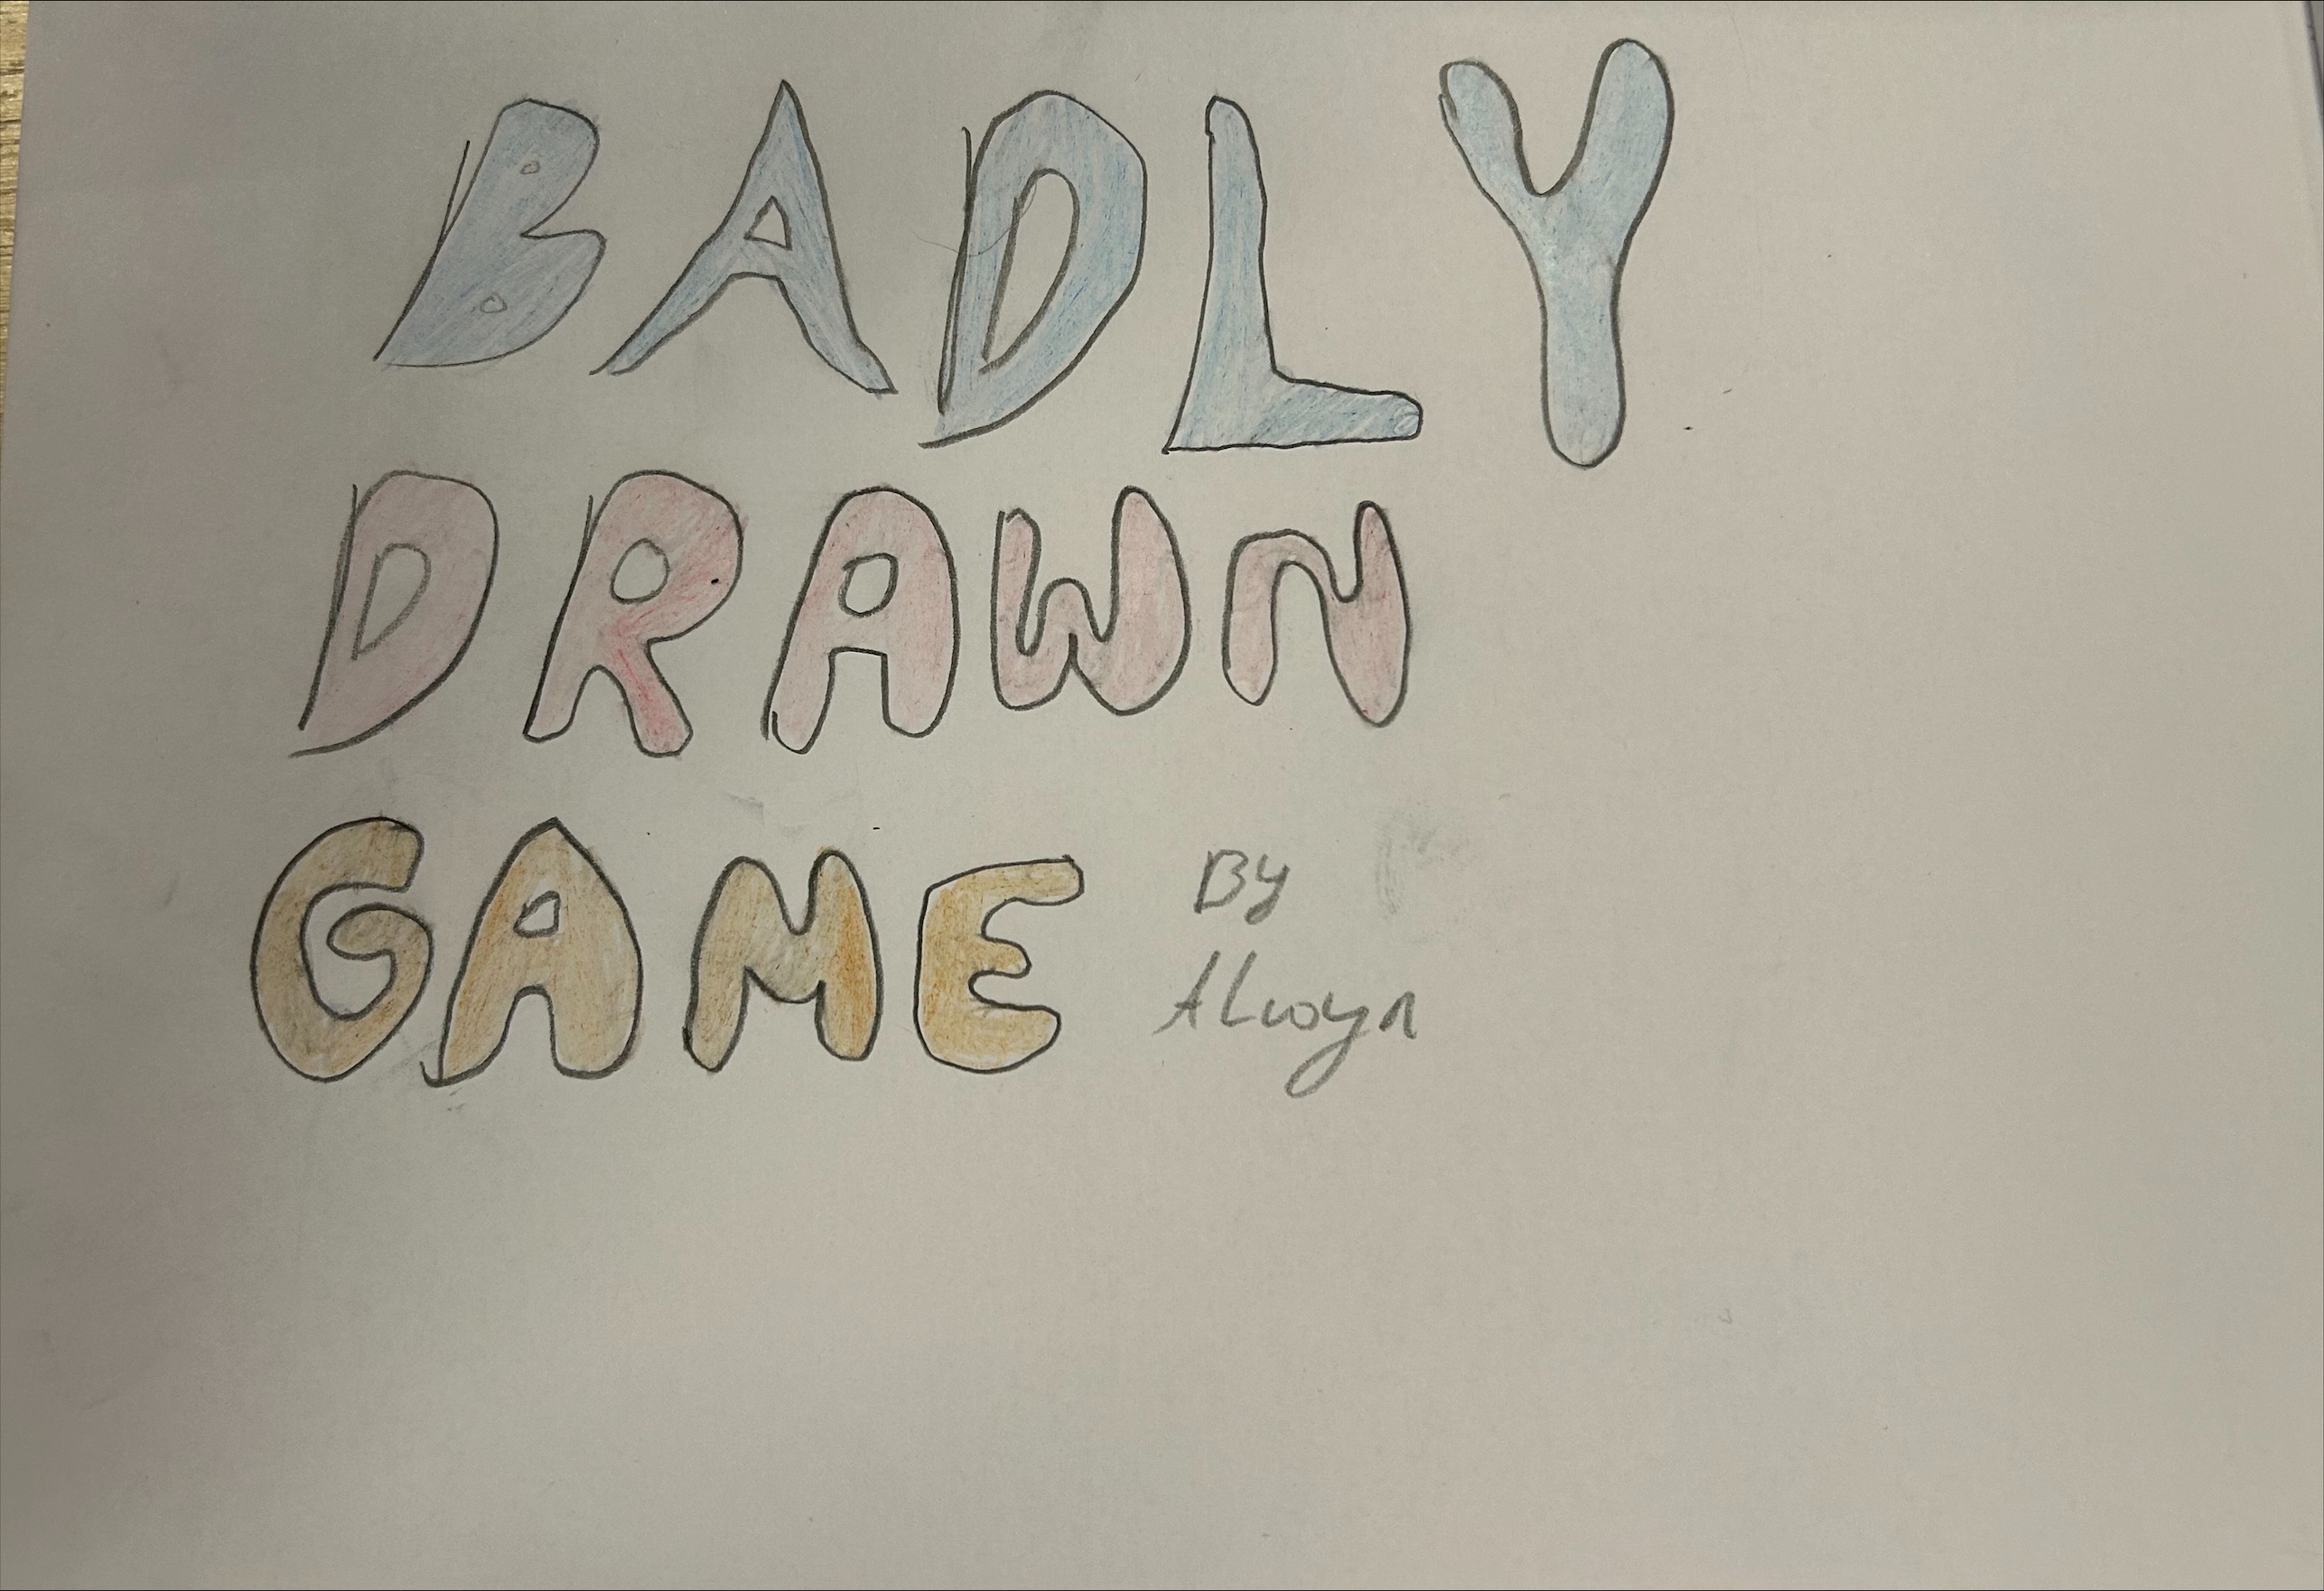 BADLY
DRAWN
GAME
By
ALwyn